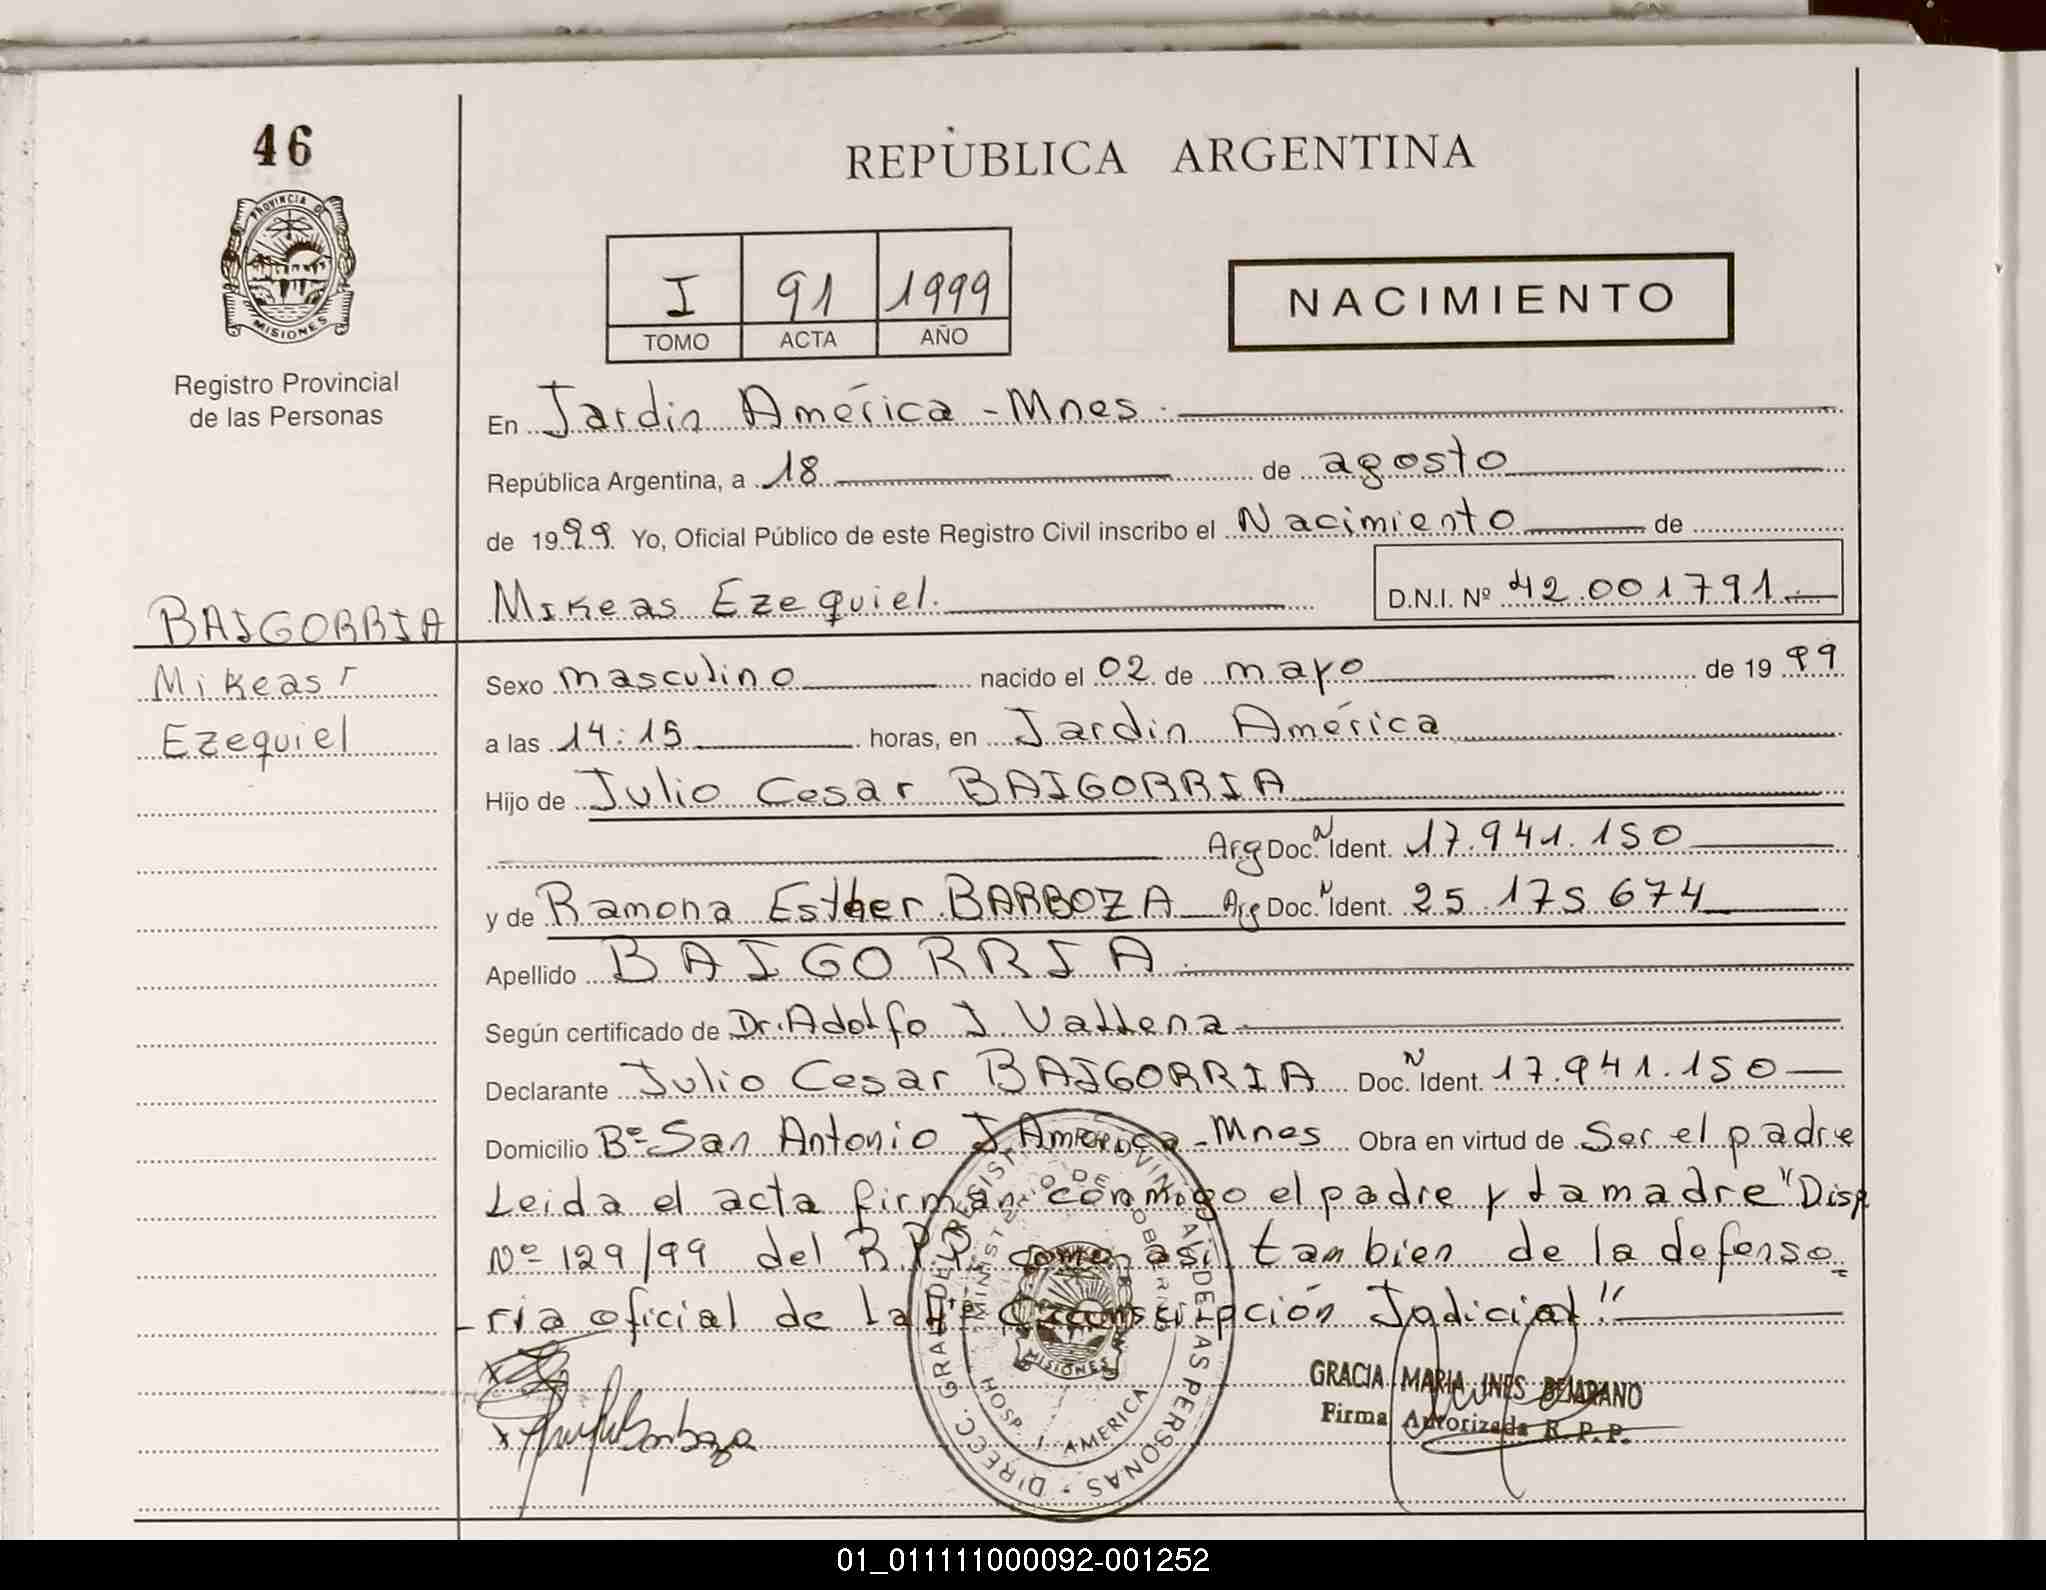 46
PROVINCIA DE
MISIONES
Registro Provincial
de las Personas
BAIGORRIA
Mikeas
Ezequiel
REPÚBLICA ARGENTINA
I 91 1999
TOMO ACTA AÑO
NACIMIENTO
En Jardin América - Mnes.
República Argentina, a 18 de agosto
de 1999 Yo, Oficial Público de este Registro Civil inscribo el Nacimiento de
Mikeas Ezequiel. D.N.I. Nº 42.001791.
Sexo masculino nacido el 02 de mayo de 1999
a las 14:15 horas, en Jardin América
Hijo de Julio Cesar BAIGORRIA
Arg Doc. N Ident. 17.941.150
y de Ramona Esther BARBOZA Arg Doc. N Ident. 25 175 674
Apellido BAIGORRIA.
Según certificado de Dr. Adolfo J
Declarante Julio Cesar BAIGORRIA Doc. N Ident. 17.941.150
Domicilio Bº San Antonio J America - Mnes Obra en virtud de Ser el padre
Leida el acta firman conmigo el padre y la madre "Disp
Nº 129/99 del R.P.P. como asi tambien de la defenso
-ria oficial de la Circonscripción Judicial"
DIRECC. GRAL DEL REGISTRO PROVINCIAL DE LAS PERSONAS
MINISTERIO DE GOBIERNO
MISIONES
HOSP. J. AMERICA
GRACIA MARIA INES BEJARANO
Firma Autorizada R. P. P.
Barboza
01_011111000092-001252